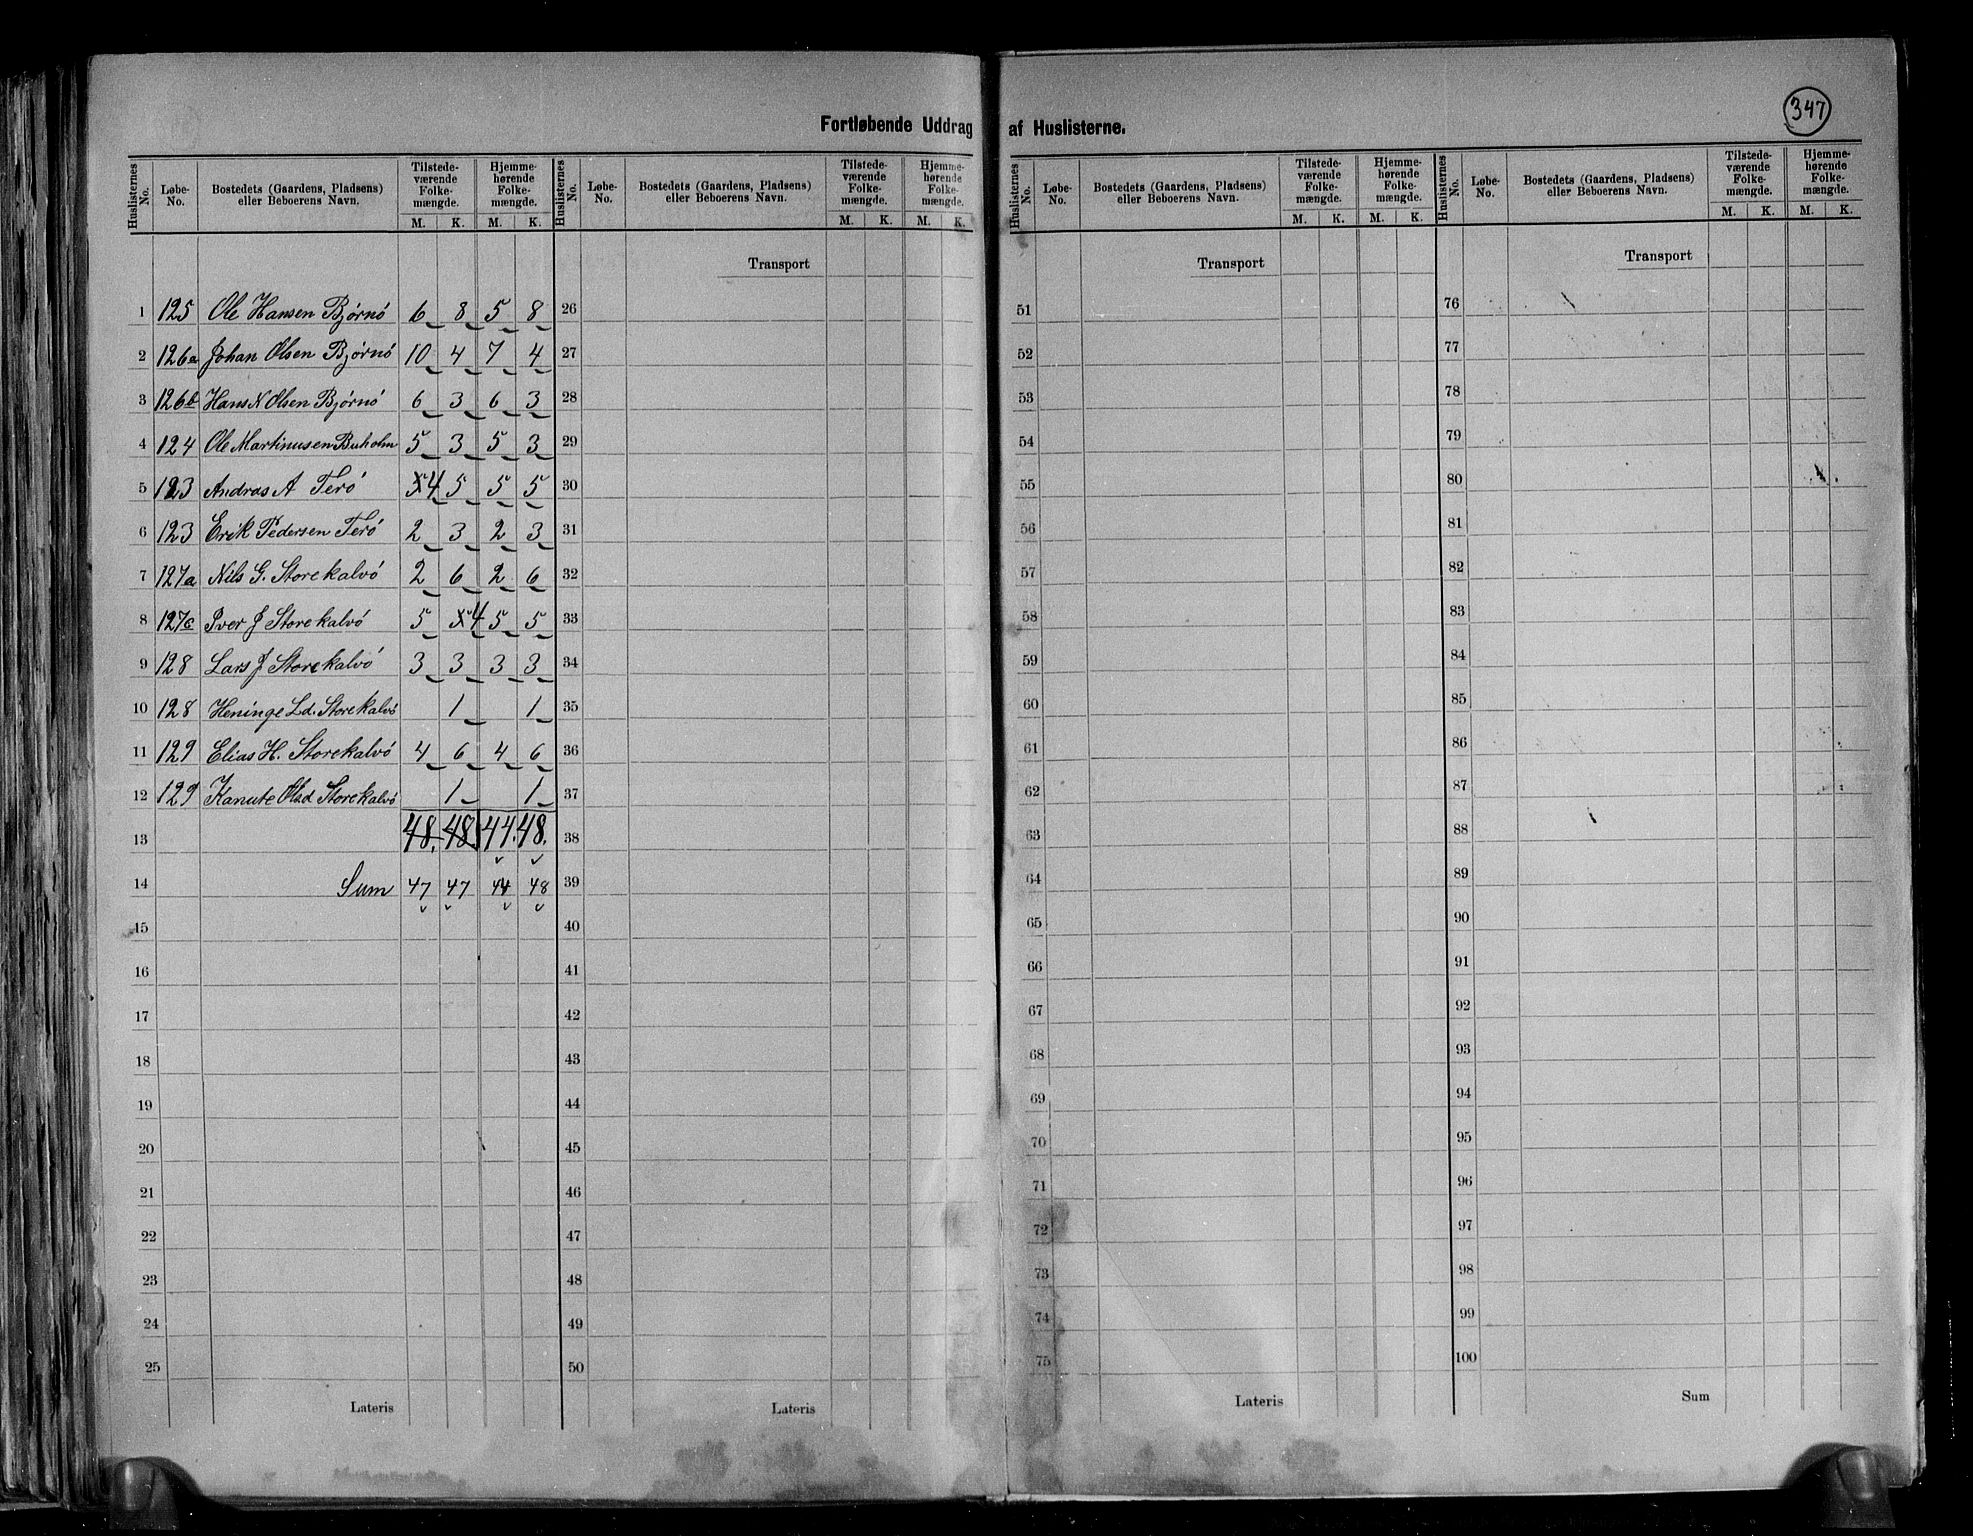 347
Fortløbende Uddrag af Huslisterne.
Huslisternes No. Løbe-No. Bostedets (Gaardens, Pladsens) eller Beboerens Navn. Tilstedeværende Folkemængde. M. K. Hjemmehørende Folkemængde. M. K.
Huslisternes No. Løbe-No. Bostedets (Gaardens, Pladsens) eller Beboerens Navn. Tilstedeværende Folkemængde. M. K. Hjemmehørende Folkemængde. M. K.
Huslisternes No. Løbe-No. Bostedets (Gaardens, Pladsens) eller Beboerens Navn. Tilstedeværende Folkemængde. M. K. Hjemmehørende Folkemængde. M. K.
Huslisternes No. Løbe-No. Bostedets (Gaardens, Pladsens) eller Beboerens Navn. Tilstedeværende Folkemængde. M. K. Hjemmehørende Folkemængde. M. K.
Transport Transport Transport
1 125 Ole Hansen Bjørnö 6 8 5 8 26 51 76
2 126a Johan Olsen Bjørnö 10 4 7 4 27 52 77
3 126b Hans N Olsen Bjørnö 6 3 6 3 28 53 78
4 124 Ole Martinusen Buholm 5 3 5 3 29 54 79
5 123 Andras A Ferö 5 4 5 5 5 30 55 80
6 123 Erik Pedersen Ferö 2 3 2 3 31 56 81
7 127a Nils G. Storekalvö 2 6 2 6 32 57 82
8 127c Iver J Storekalvö 5 5 4 5 5 33 58 83
9 128 Lars J Storekalvö 3 3 3 3 34 59 84
10 128 Heninge Ld. Storekalvö 1 1 35 60 85
11 129 Elias H. Storekalvö 4 6 4 6 36 61 86
12 129 Kanute Olsd Storekalvö 1 1 37 62 87
13 48. 48 44. 48. 38 63 88
14 Sum 47 47 44 48 39 64 89
15 40 65 90
16 41 66 91
17 42 67 92
18 43 68 93
19 44 69 94
20 45 70 95
21 46 71 96
22 47 72 97
23 48 73 98
24 49 74 99
25 50 75 100
Lateris Lateris Lateris Sum